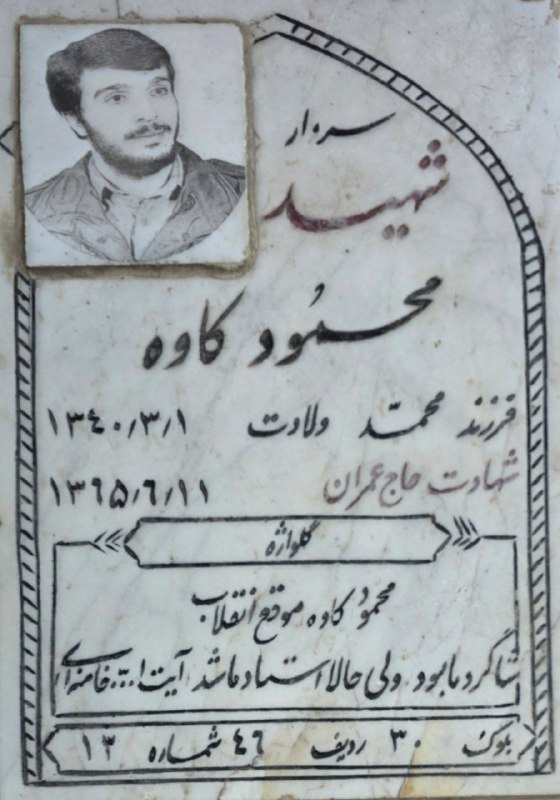 سردار
شهید
محمُود کاوه
فرزند محمّد ولادت ۱۳٤۰/۳/۱
شهادت حاج عمران ۱۳٦۵/٦/۱۱
گلواژه
محمُود کاوه موقع انقلاب
شاگرد ما بود. ولی حالا استاد ما شد آیت ا... خامنه ای
بلوک ۳۰ ردیف ٤٦ شماره ۱۳